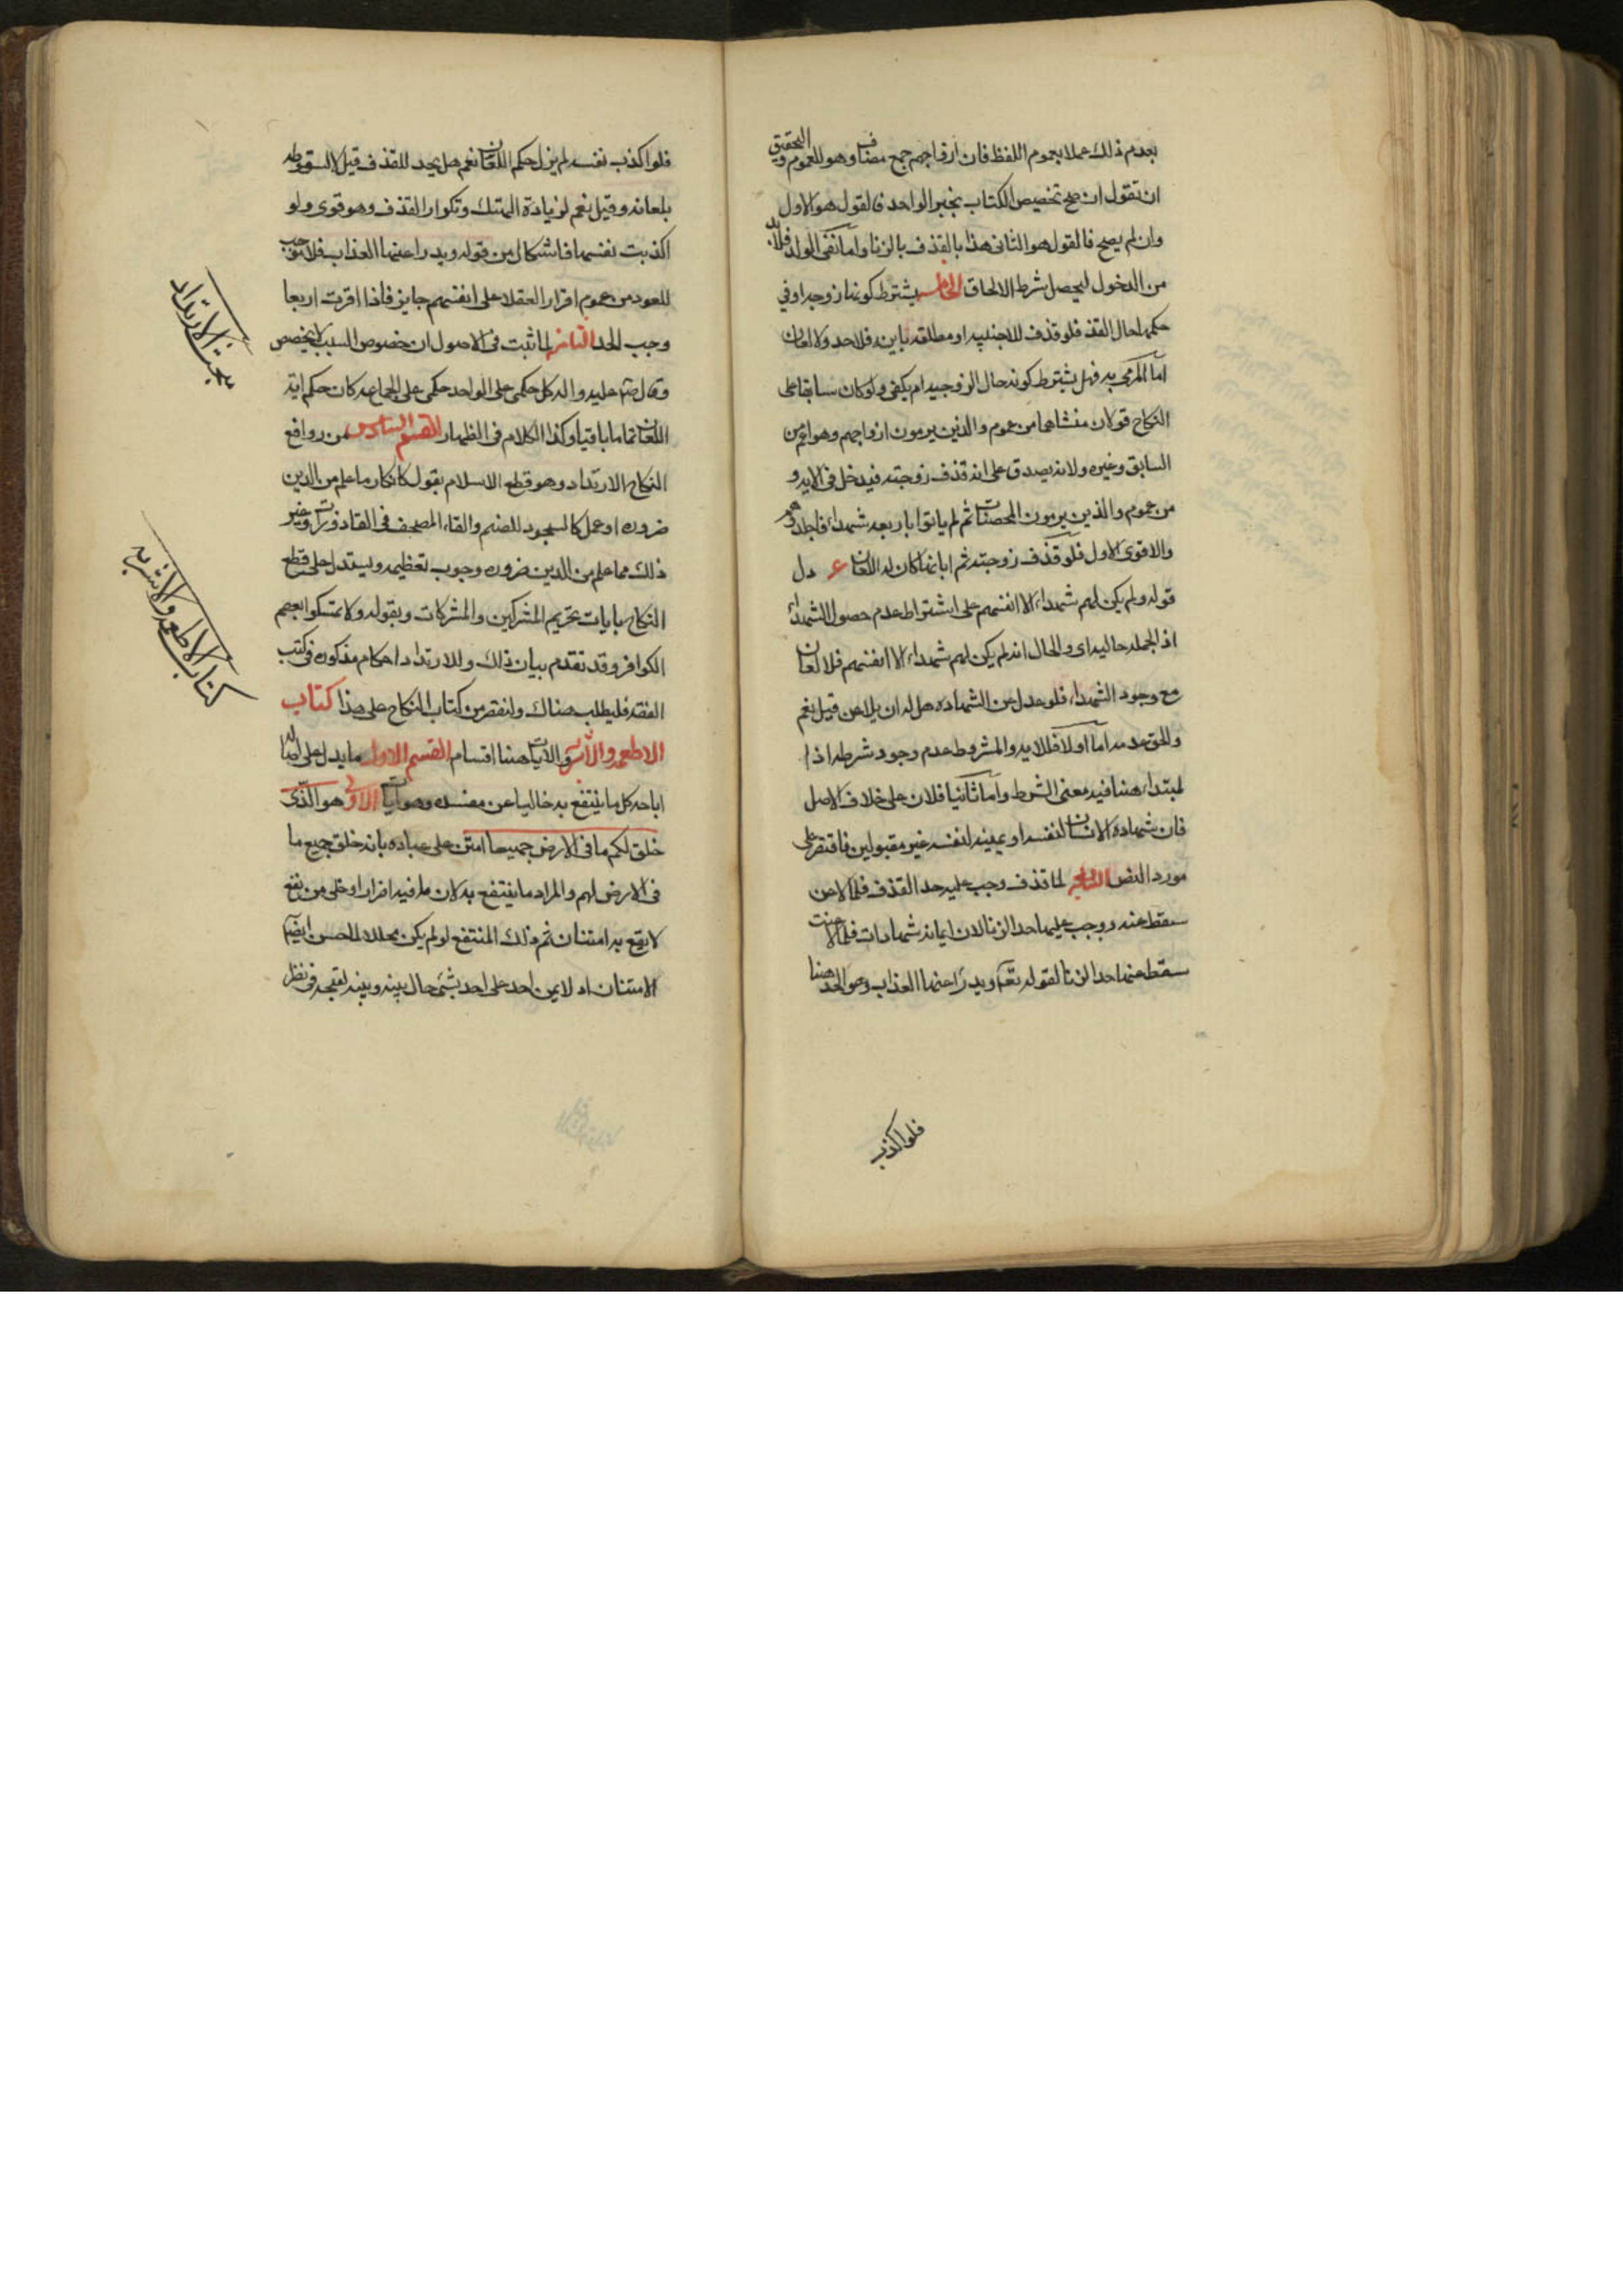 بعدم ذلك عملا بعموم اللفظ فان ازواجهم جمع مضاف وهو للعموم والتحقيق
ان تقول ان صح تخصيص الكتاب بخبر الواحد فالقول هو الاول
وان لم يصح فالقول هو الثانى هذا بالقذف بالزنا واما نفى الولد فلابد
من الدخول ليحصل شرط الالحاق الخامس يشترط كونها زوجه او فى
حكمها حال القذف فلو قذف للاجنبيه او مطلقه باينه فلا حد ولا لعان
اما المرمى به فهل يشترط كونه حال الزوجيه ام يكفى ولو كان سابقا على
النكاح قولان منشاهما من عموم والذين يرمون ازواجهم وهو اعم من
السابق وغيره ولانه يصدق على انه قذف زوجته فيدخل فى الايه و
من عموم والذين يرمون المحصنات ثم لم ياتوا باربعه شهداء فاجلدوهم
والاقوى الاول فلو قذف زوجته ثم ابانها كان له اللعان دل
قوله ولم يكن لهم شهداء الا انفسهم على اشتراط عدم حصول الشهداء
اذ الجمله حاليه اى والحال انه لم يكن لهم شهداء الا انفسهم فلا لعان
مع وجود الشهداء فلو عدل عن الشهاده هل له ان يلاعن قيل نعم
والحق عدمه اما اولا فللايه والمشروط عدم وجود شرطه اذا
لمبتداء هنا فيه معنى الشرط واما ثانيا فلان على خلاف الاصل
فان شهاده الانسان لنفسه او يمينه لنفسه غير مقبولين فاقتصر على
مورد النص السابع لما قذف وجب عليه حد القذف فلما لاعن
سقط عنه ووجب عليها حد الزنا لان ايمانه شهادات فلما لاعنت
سقط عنها حد الزنا لقوله تعالى ويدرا عنها العذاب وهو الحد هنا
فلو اكذب
فلو اكذب نفسه لم يزل حكم اللعان نعم هل يحد للقذف قيل لا لسقوطه
بلعانه وقيل نعم لزيادة الهتك وتكرار القذف وهو قوى ولو
اكذبت نفسها فاشكال من قوله ويدرا عنها العذاب فلا موجب
للعود من عموم اقرار العقلا على انفسهم جايز فاذا اقرت اربعا
وجب الحد الثامن لما ثبت فى الاصول ان خصوص السبب لا يخصص
وقال ص عليه واله كل حكمى على الواحد حكمى على الجماعه كان حكم ايه
اللعان تماما باقيا وكذا الكلام فى الظهار القسم السادس من روافع
النكاح الارتداد وهو قطع الاسلام بقول كانكار ما علم من الدين
ضروره او عمل كالسجود للصنم والقاء المصحف فى القاذورات وغير
ذلك مما علم من الدين ضروره وجوب تعظيمه ويستدل على قطع
النكاح بايات تحريم المشركين والمشركات وبقوله ولا تمسكوا بعصم
الكوافر وقد تقدم بيان ذلك وللارتداد احكام مذكوره فى كتب
الفقه فليطلب هناك ولنقصر من كتاب النكاح على هذا كتاب
الاطعمه والاشربه والايات هنا اقسام القسم الاول ما يدل على اصاله
اباحه كل ما ينتفع به خاليا عن مفسده وهو ايات الاولى هو الذى
خلق لكم ما فى الارض جميعا امتن على عباده بانه خلق جميع ما
فى الارض لهم والمراد ما ينتفع به لان ما فيه اضرار او خلى من نفع
لا يقع به امتنان ثم ذلك المنتفع لو لم يكن محللا لما حسن ايضا
الامتنان اذ لا يمن احد على احد بشئ حال بينه وبينه لقبحه فى نظر
مبحث الارتداد
كتاب الاطعمه والاشربه